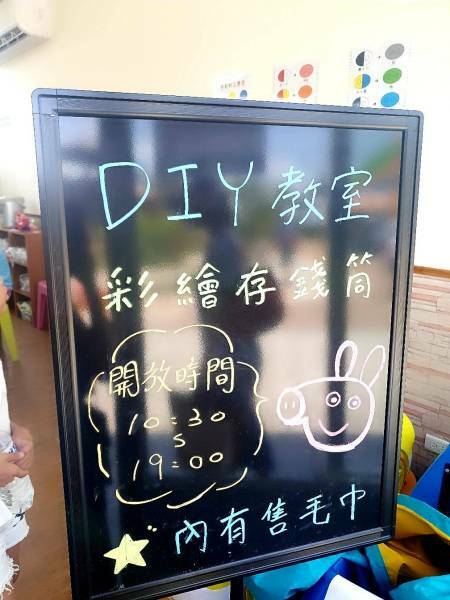 DIY 教室
彩繪存錢筒
開放時間
10:30
S
19:00
內有售毛巾